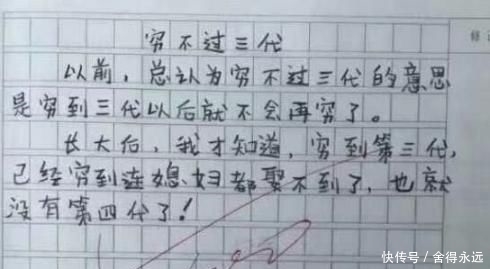 穷不过三代
以前，总认为穷不过三代的意思
是穷到三代以后就不会再穷了。
长大后，我才知道，穷到第三代，
已经穷到连媳妇都娶不到了，也就
没有第四代了！
快传号／舍得永远